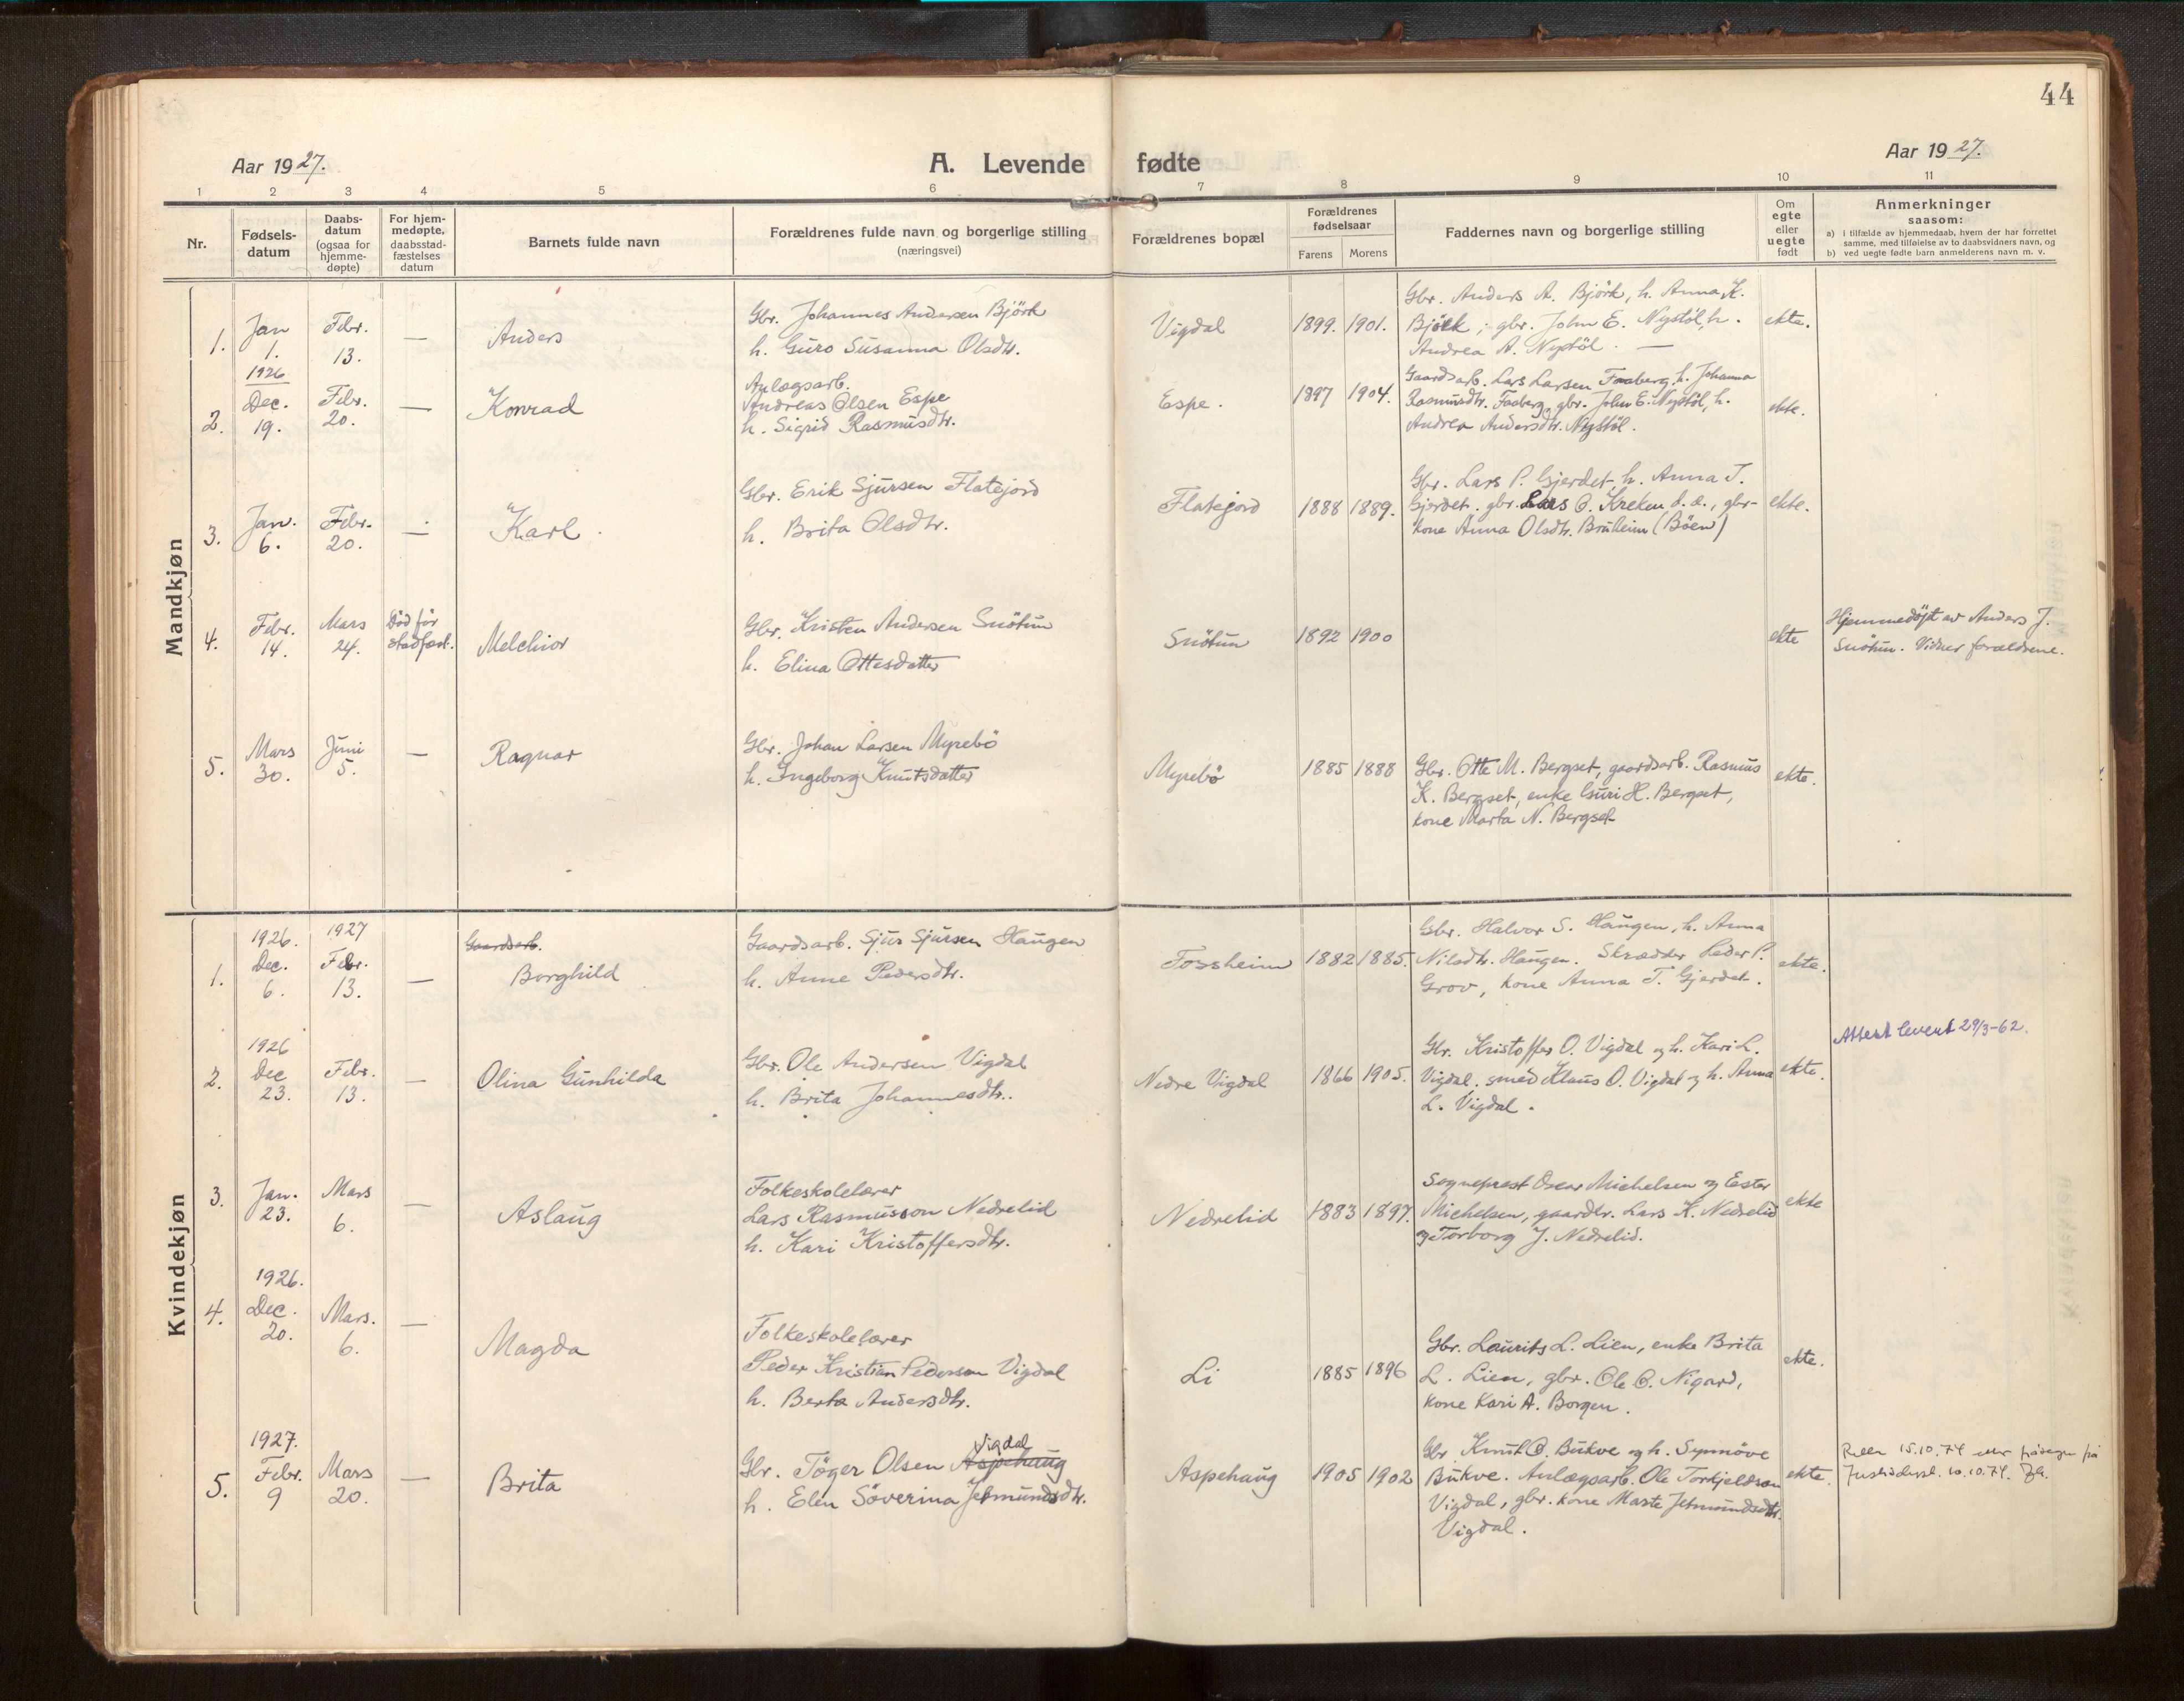 44
Aar 1927.
A. Levende fødte
Aar 1927.
1 2 3 4 5 6 7 8 9 10 11
Nr.
Fødsels-
datum
Daabs-
datum
(ogsaa for
hjemme-
døpte)
For hjem-
medøpte,
daabsstad-
fæstelses
datum
Barnets fulde navn
Forældrenes fulde navn og borgerlige stilling
(næringsvei)
Forældrenes bopæl
Forældrenes
fødselsaar
Farens Morens
Faddernes navn og borgerlige stilling
Om
egte
eller
uegte
født
Anmerkninger
saasom:
a) i tilfælde av hjemmedaab, hvem der har forrettet
samme, med tilføielse av to daabsvidners navn, og
b) ved uegte fødte barn anmelderens navn m. v.
Mandkjøn
1.
Jan
1.
Febr.
13.
—
Anders
Gbr. Johannes Andersen Björk
h. Guro Susanna Olsdtr.
Vigdal
1899. 1901.
Gbr. Anders A. Björk, h. Anna K.
Björk; gbr. John E. Nystöl, h.
Andrea A. Nystöl. —
ekte.
2.
1926
Dec.
19.
Febr.
20.
—
Konrad
Anlægsarb.
Andreas Olsen Espe
h. Sigrid Rasmusdtr.
Espe.
1897 1904.
Gaardsarb. Lars Larsen Faaberg, h. Johanna
Rasmusdtr. Faaberg, gbr. John E. Nystöl, h.
Andrea Andersdtr. Nystöl.
ekte.
3.
Jan.
6.
Febr.
20.
—
Karl.
Gbr. Erik Sjursen Flatejord
h. Brita Olsdtr.
Flatejord
1888 1889.
Gbr. Lars P. Gjerdet, h. Anna T.
Gjerdet. gbr. Lars O. Kreken d. e., gbr-
kone Anna Olsdtr. Bruheim (Böen)
ekte.
4.
Febr.
14.
Mars
24.
Död för
stadfæst.
Melchior
Gbr. Kristen Andersen Snötun
h. Elina Ottesdatter
Snötun
1892 1900
ekte
Hjemmedöpt av Anders J.
Snötun. Vidner forældrene.
5.
Mars
30.
Juni
5.
—
Ragnar
Gbr. Johan Larsen Myrebö
h. Ingeborg Knutsdatter
Myrebö
1885 1888
Gbr. Otte M. Bergset, gaardsarb. Rasmus
K. Bergset, enke Guri H. Bergset,
kone Marta N. Bergset
ekte.
Kvindekjøn
1.
1926.
Dec.
6.
1927
Febr.
13.
—
Gaardsarb.
Borghild
Gaardsarb. Sjur Sjursen Haugen
h. Anne Pedersdtr.
Fossheim
1882 1885.
Gbr. Halvor S. Haugen, h. Anna
Nilsdtr. Haugen. Skrædder Peder P.
Grov, kone Anna T. Gjerdet.
ekte.
2.
1926
Dec
23.
Febr.
13.
—
Olina Gunhilda
Gbr. Ole Andersen Vigdal
h. Brita Johannesdtr.
Nedre Vigdal
1866 1905.
Gbr. Kristoffer O. Vigdal og h. Kari L.
Vigdal. smed Klaus O. Vigdal og h. Anna
L. Vigdal.
ekte.
Attest levert 29/3-62.
3.
Jan.
23.
Mars
6.
—
Aslaug
Folkeskolelærer
Lars Rasmusson Nedrelid
h. Kari Kristoffersdtr.
Nedrelid
1883 1897.
Sogneprest Oscar Michelsen og Ester
Michelsen, gaardbr. Lars K. Nedrelid
og Torborg J. Nedrelid.
ekte
4.
1926.
Dec.
20.
Mars.
6.
—
Magda
Folkeskolelærer
Peder Kristian Pederson Vigdal
h. Berta Andersdtr.
Li
1885 1896
Gbr. Laurits L. Lien, enke Brita
L. Lien, gbr. Ole O. Nigard,
kone Kari A. Borgen.
ekte.
5.
1927.
Febr.
9
Mars
20.
—
Brita
Vigdal
Gbr. Töger Olsen Aspehaug
h. Elen Söverina Jetmundsdtr.
Aspehaug
1905 1902
Gbr. Knut O. Bukve og h. Synnöve
Bukve. Anlægsarb. Ole Torkjeldson
Vigdal, gbr. kone Marte Jetmundsdtr.
Vigdal.
ekte.
15.10.74 på
10.10.74.